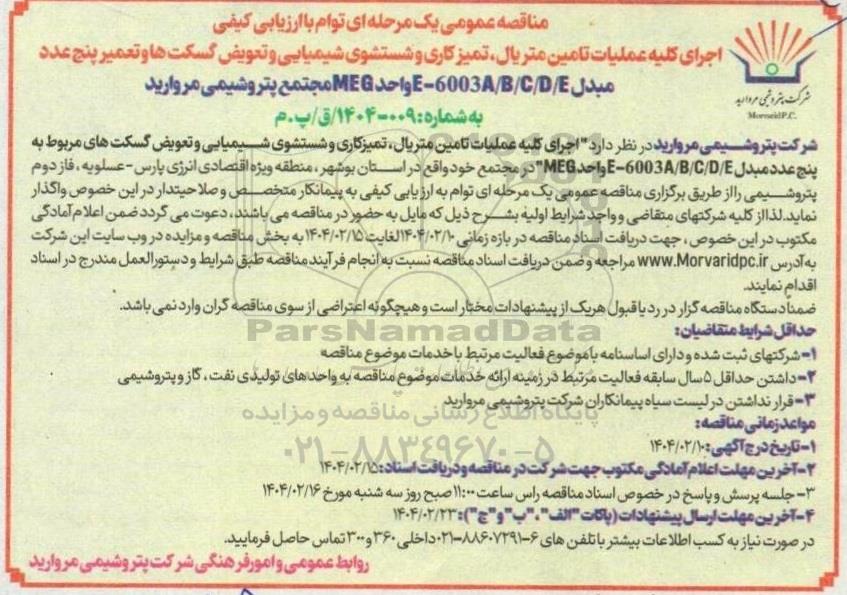 مناقصه عمومی یک مرحله ای توام با ارزیابی کیفی
اجرای کلیه عملیات تامین متریال، تمیز کاری و شستشوی شیمیایی و تعویض گسکت ها و تعمیر پنج عدد
مبدل E-6003A/B/C/D/E واحد MEG مجتمع پتروشیمی مروارید
به شماره: ۰۰۹-۱۴۰۴/ق/پ.م
شرکت پتروشیمی مروارید
Morvarid P.C.
شرکت پتروشیمی مروارید در نظر دارد "اجرای کلیه عملیات تامین متریال، تمیزکاری و شستشوی شیمیایی و تعویض گسکت های مربوط به
پنج عدد مبدل E-6003A/B/C/D/E واحد MEG" در مجتمع خود واقع در استان بوشهر، منطقه ویژه اقتصادی انرژی پارس-عسلویه، فاز دوم
پتروشیمی را از طریق برگزاری مناقصه عمومی یک مرحله ای توام به ارزیابی کیفی به پیمانکار متخصص و صلاحیتدار در این خصوص واگذار
نماید. لذا از کلیه شرکتهای متقاضی و واجد شرایط اولیه بشرح ذیل که مایل به حضور در مناقصه می باشند، دعوت می گردد ضمن اعلام آمادگی
مکتوب در این خصوص، جهت دریافت اسناد مناقصه در بازه زمانی ۱۴۰۴/۰۲/۱۰ لغایت ۱۴۰۴/۰۲/۱۵ به بخش مناقصه و مزایده در وب سایت این شرکت
به آدرس www.Morvaridpc.ir مراجعه و ضمن دریافت اسناد مناقصه نسبت به انجام فرآیند مناقصه طبق شرایط و دستورالعمل مندرج در اسناد
اقدام نمایند.
ضمنا دستگاه مناقصه گزار در رد یا قبول هریک از پیشنهادات مختار است و هیچگونه اعتراضی از سوی مناقصه گران وارد نمی باشد.
ParsNamadData
حداقل شرایط متقاضیان:
۱- شرکتهای ثبت شده و دارای اساسنامه با موضوع فعالیت مرتبط با خدمات موضوع مناقصه
۲- داشتن حداقل ۵ سال سابقه فعالیت مرتبط در زمینه ارائه خدمات موضوع مناقصه به واحدهای تولیدی نفت، گاز و پتروشیمی
۳- قرار نداشتن در لیست سیاه پیمانکاران شرکت پتروشیمی مروارید
پایگاه اطلاع رسانی مناقصه و مزایده
مواعد زمانی مناقصه:
۱- تاریخ درج آگهی: ۱۴۰۴/۰۲/۱۰
۰۲۱-۸۸۳۴۹۶۷۰-۵
۲- آخرین مهلت اعلام آمادگی مکتوب جهت شرکت در مناقصه و دریافت اسناد: ۱۴۰۴/۰۲/۱۵
۳- جلسه پرسش و پاسخ در خصوص اسناد مناقصه راس ساعت ۱۱:۰۰ صبح روز سه شنبه مورخ ۱۴۰۴/۰۲/۱۶
۴- آخرین مهلت ارسال پیشنهادات (پاکات "الف"، "ب" و "ج"): ۱۴۰۴/۰۲/۲۳
در صورت نیاز به کسب اطلاعات بیشتر با تلفن های ۶-۸۸۶۰۷۲۹۱-۰۲۱ داخلی ۳۶۰ و ۳۰۰ تماس حاصل فرمایید.
روابط عمومی و امور فرهنگی شرکت پتروشیمی مروارید